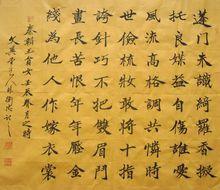 蓬門未識綺羅香擬
託良媒益自傷誰愛
風流高格調共憐時
世儉梳妝敢將十指
誇針巧不把雙眉鬥
畫長苦恨年年壓金
綫為他人作嫁衣裳
秦韜玉貧女壬辰春月之時